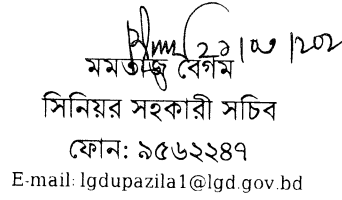 মমতাজ বেগম
সিনিয়র সহকারী সচিব
ফোন: ৯৫৬২২৪৭
E-mail: lgdupazila1@lgd.gov.bd